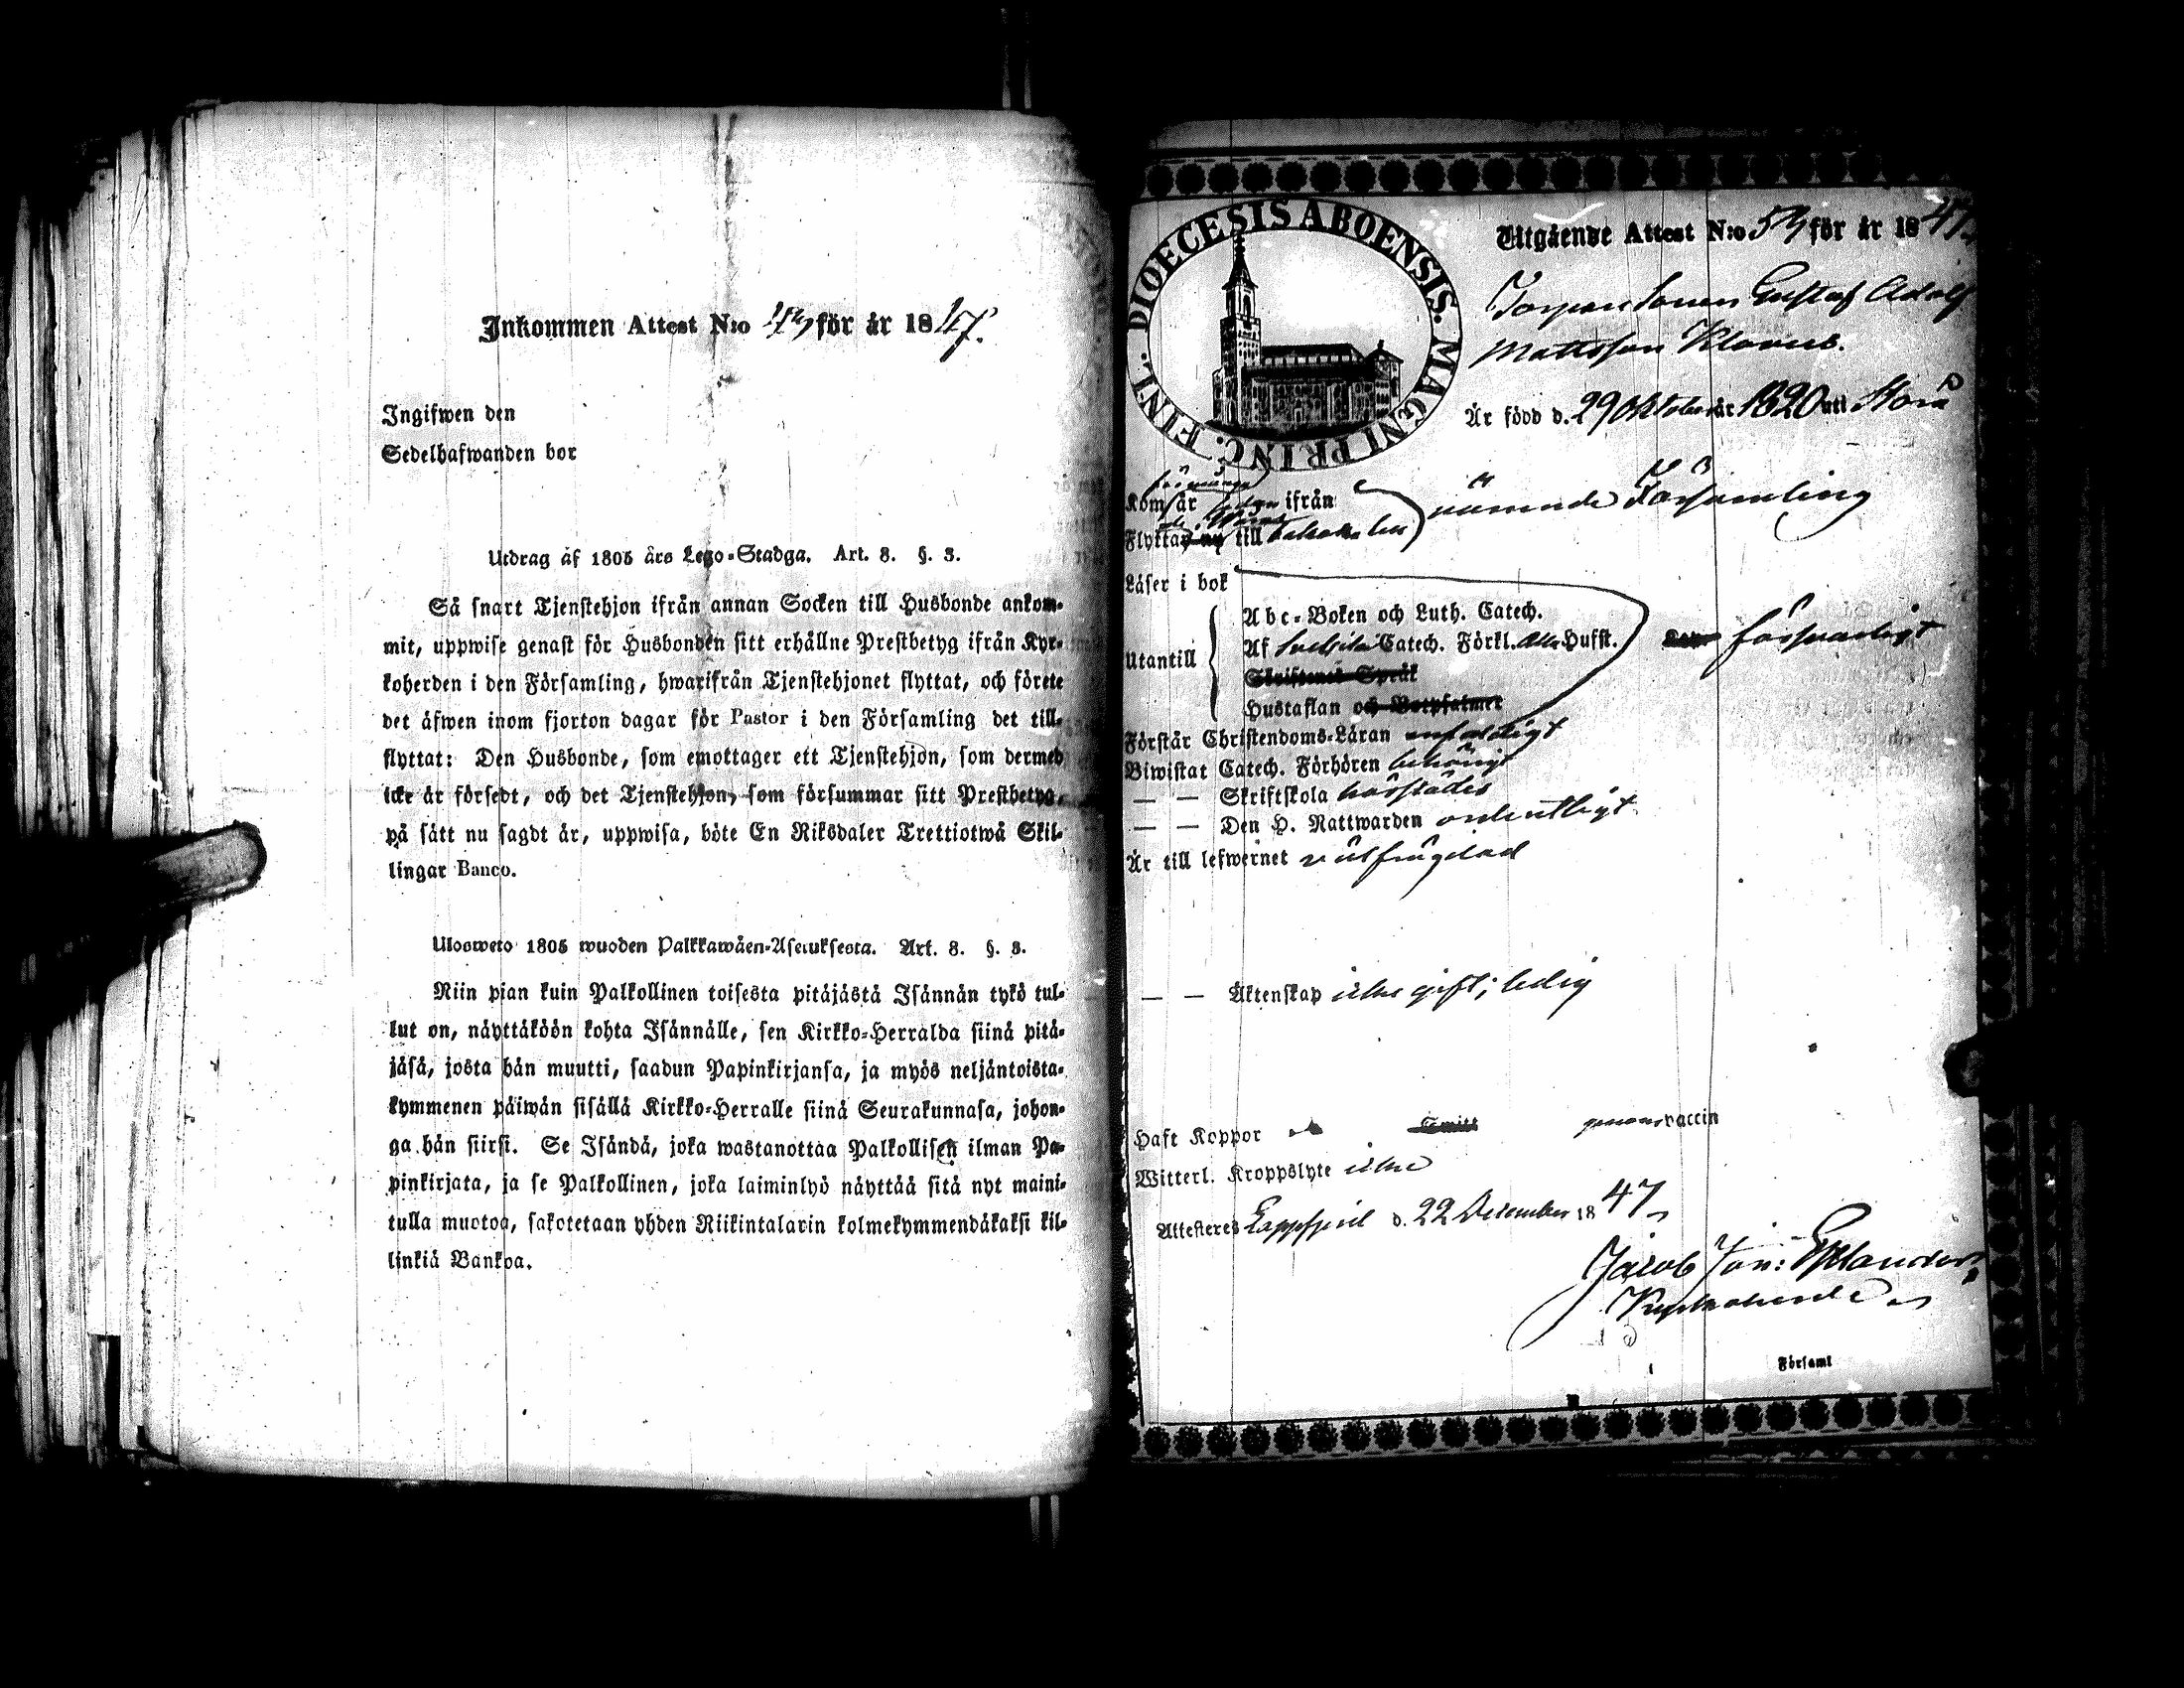 Inkommen Attest N:o för år 1847.
Ingifwen den
Sedelhafwanden bor
Utdrag af 1805 års Lego-Stadga. Art. 8. §. 3.
Så snart Tjenstehjon ifrån annan Socken till Husbonde ankom-
mit, uppwise genast för Husbonden sitt erhållne Prestbetyg ifrån Kyr-
koherden i den Församling, hwarifrån Tjenstehjonet flyttat, och förete
det äfwen inom fjorton dagar för Pastor i den Församling det till-
flyttat: Den Husbonde, som emottager ett Tjenstehjon, som dermed
icke är försedt, och det Tjenstehjon, som försummar sitt Prestbetyg,
på sätt nu sagdt är, uppwisa, böte En Riksdaler Trettiotwå Skil-
lingar Banco.
Ulosweto 1805 wuoden Palkkawäen-Asetuksesta. Art. 8. §. 3.
Niin pian kuin Palkollinen toisesta pitäjästä Isännän tykö tul-
lut on, näyttäköön kohta Isännälle, sen Kirkko-Herralda siinä pitä-
jäsä, josta hän muutti, saadun Papinkirjansa, ja myös neljäntoista-
kymmenen päiwän sisällä Kirkko-Herralle siinä Seurakunnasa, johon-
ga hän siirsi. Se Isändä, joka wastanottaa Palkollisen ilman Pa-
pinkirjata, ja se Palkollinen, joka laiminlyö näyttää sitä nyt maini-
tulla muotoa, sakotetaan yhden Riikintalarin kolmekymmendäkaksi kil-
linkiä Bankoa.
DIOECESIS ABOENSIS. MAGNI PRINC. FINL.
Utgående Attest N:o 53 för år 1847.
Gustaf Adolf
Mattsson Klavus.
Är född d. 29 Oktober år 1820 uti Storå
Kom är ifrån nämnde Församling
Flyttar nu till
Läser i bok
Utantill
Abc-Boken och Luth. Catech.
Af Svebilii Catech. Förkl. Alla Hufst. försvarligt
Skriftenes Språk
Hustaflan och Botpsalmer
Förstår Christendoms-Läran enfaldigt
Biwistat Catech. Förhören behörigt
— — Skriftskola härstädes
— — Den H. Nattwarden ordentligt
Är till lefwernet välfrägdad
— — Äktenskap icke gift; ledig
Haft Koppor genom vaccin
Witterl. Kroppslyte icke
Attesteres Lappfjerd d. 22 December 1847
Jacob Jon: Estlander
Kyrkoherde
Församl